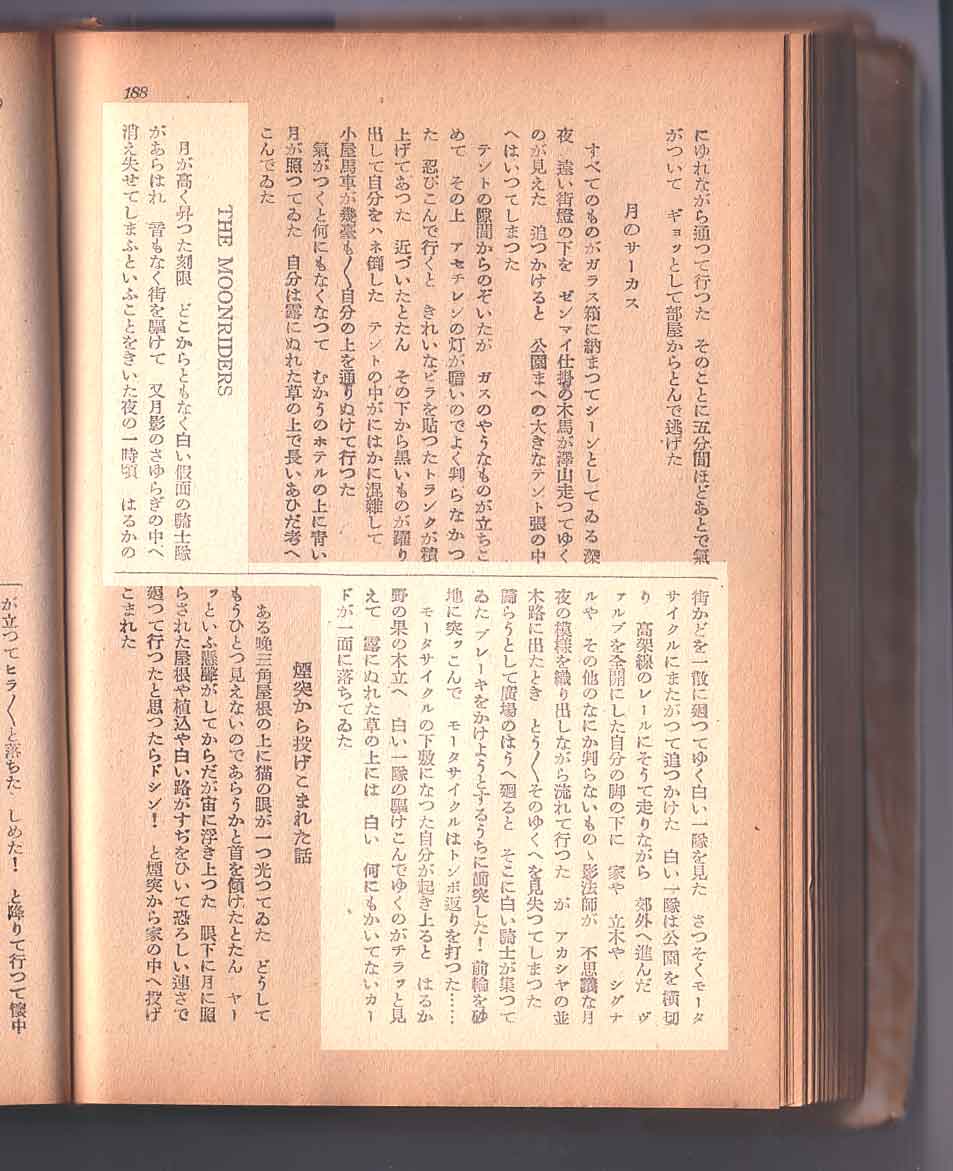 188
にゆれながら通つて行つた　そのことに五分間ほどあとで氣
がついて　ギョッとして部屋からとんで逃げた
月のサーカス
すべてのものがガラス箱に納まつてシーンとしてゐる深
夜　遠い街燈の下を　ゼンマイ仕掛の木馬が澤山走つてゆく
のが見えた　追つかけると　公園まへの大きなテント張の中
へはいつてしまつた
テントの隙間からのぞいたが　ガスのやうなものが立ちこ
めて　その上　アセチレンの灯が暗いのでよく判らなかつ
た　忍びこんで行くと　きれいなビラを貼つたトランクが積
上げてあつた　近づいたとたん　その下から黒いものが躍り
出して自分をハネ倒した　テントの中がにはかに混雜して
小屋馬車が幾臺も〱自分の上を通りぬけて行つた
氣がつくと何にもなくなつて　むかうのホテルの上に青い
月が照つてゐた　自分は露にぬれた草の上で長いあひだ考へ
こんでゐた
THE MOONRIDERS
月が高く昇つた刻限　どこからともなく白い假面の騎士隊
があらはれ　音もなく街を驅けて　又月影のさゆらぎの中へ
消え失せてしまふといふことをきいた夜の一時頃　はるかの
街かどを一散に廻つてゆく白い一隊を見た　さつそくモータ
サイクルにまたがつて追つかけた　白い一隊は公園を横切
り　高架線のレールにそうて走りながら　郊外へ進んだ　ヴ
ァルブを全開にした自分の脚の下に　家や　立木や　シグナ
ルや　その他のなにか判らないものゝ影法師が　不思議な月
夜の模様を織り出しながら流れて行つた　が　アカシヤの並
木路に出たとき　とう〱そのゆくへを見失つてしまつた
歸らうとして廣場のはうへ廻ると　そこに白い騎士が集つて
ゐた　ブレーキをかけようとするうちに衝突した！　前輪を砂
地に突ッこんで　モータサイクルはトンボ返りを打つた……
モータサイクルの下敷になつた自分が起き上ると　はるか
野の果の木立へ　白い一隊の驅けこんでゆくのがチラッと見
えて　露にぬれた草の上には　白い　何にもかいてないカー
ドが一面に落ちてゐた
煙突から投げこまれた話
ある晩三角屋根の上に猫の眼が一つ光つてゐた　どうして
もうひとつ見えないのであらうかと首を傾けたとたん　ヤー
ッといふ懸聲がしてからだが宙に浮き上つた　眼下に月に照
らされた屋根や植込や白い路がすぢをひいて恐ろしい速さで
廻つて行つたと思つたらドシン！　と煙突から家の中へ投げ
こまれた
が立つてヒラ〱と落ちた　しめた！　と降りて行つて懷中